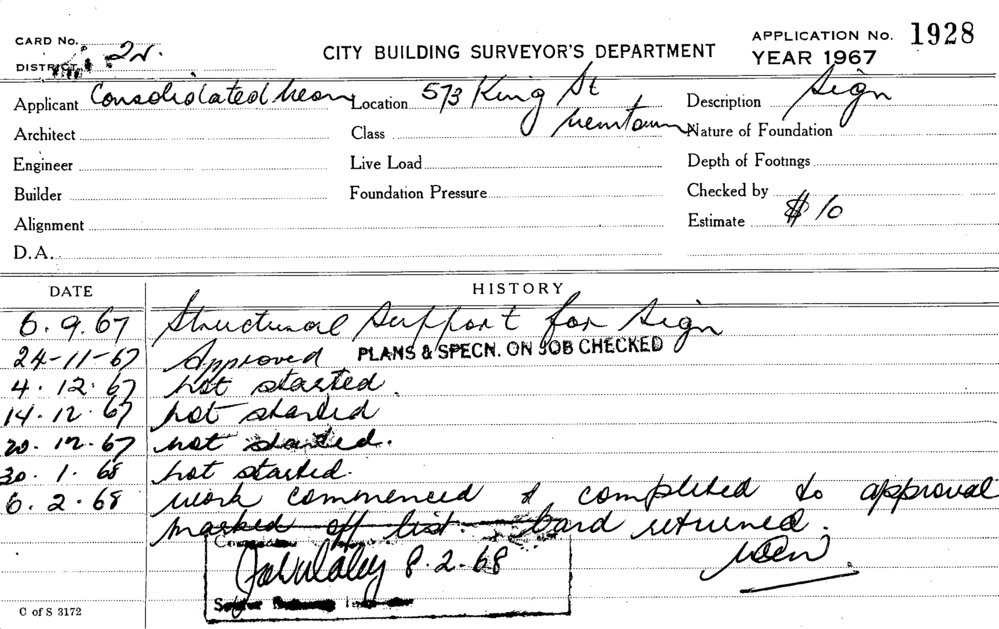 CARD No. 2w.
DISTRICT
CITY BUILDING SURVEYOR'S DEPARTMENT
APPLICATION No. 1928
YEAR 1967
Applicant Consolidated Neon Location 573 King St Description Sign
Newtown
Architect Class Nature of Foundation
Engineer Live Load Depth of Footings
Builder Foundation Pressure Checked by
Alignment Estimate $10
D.A.
DATE HISTORY
6.9.67 Structural Support for Sign
24-11-67 Approved PLANS & SPECN. ON JOB CHECKED
4.12.67 not started.
14.12.67 not started
20.12.67 not started.
30.1.68 not started.
6.2.68 work commenced & completed to approval
marked off list. Card returned.
8.2.68
C of S 3172